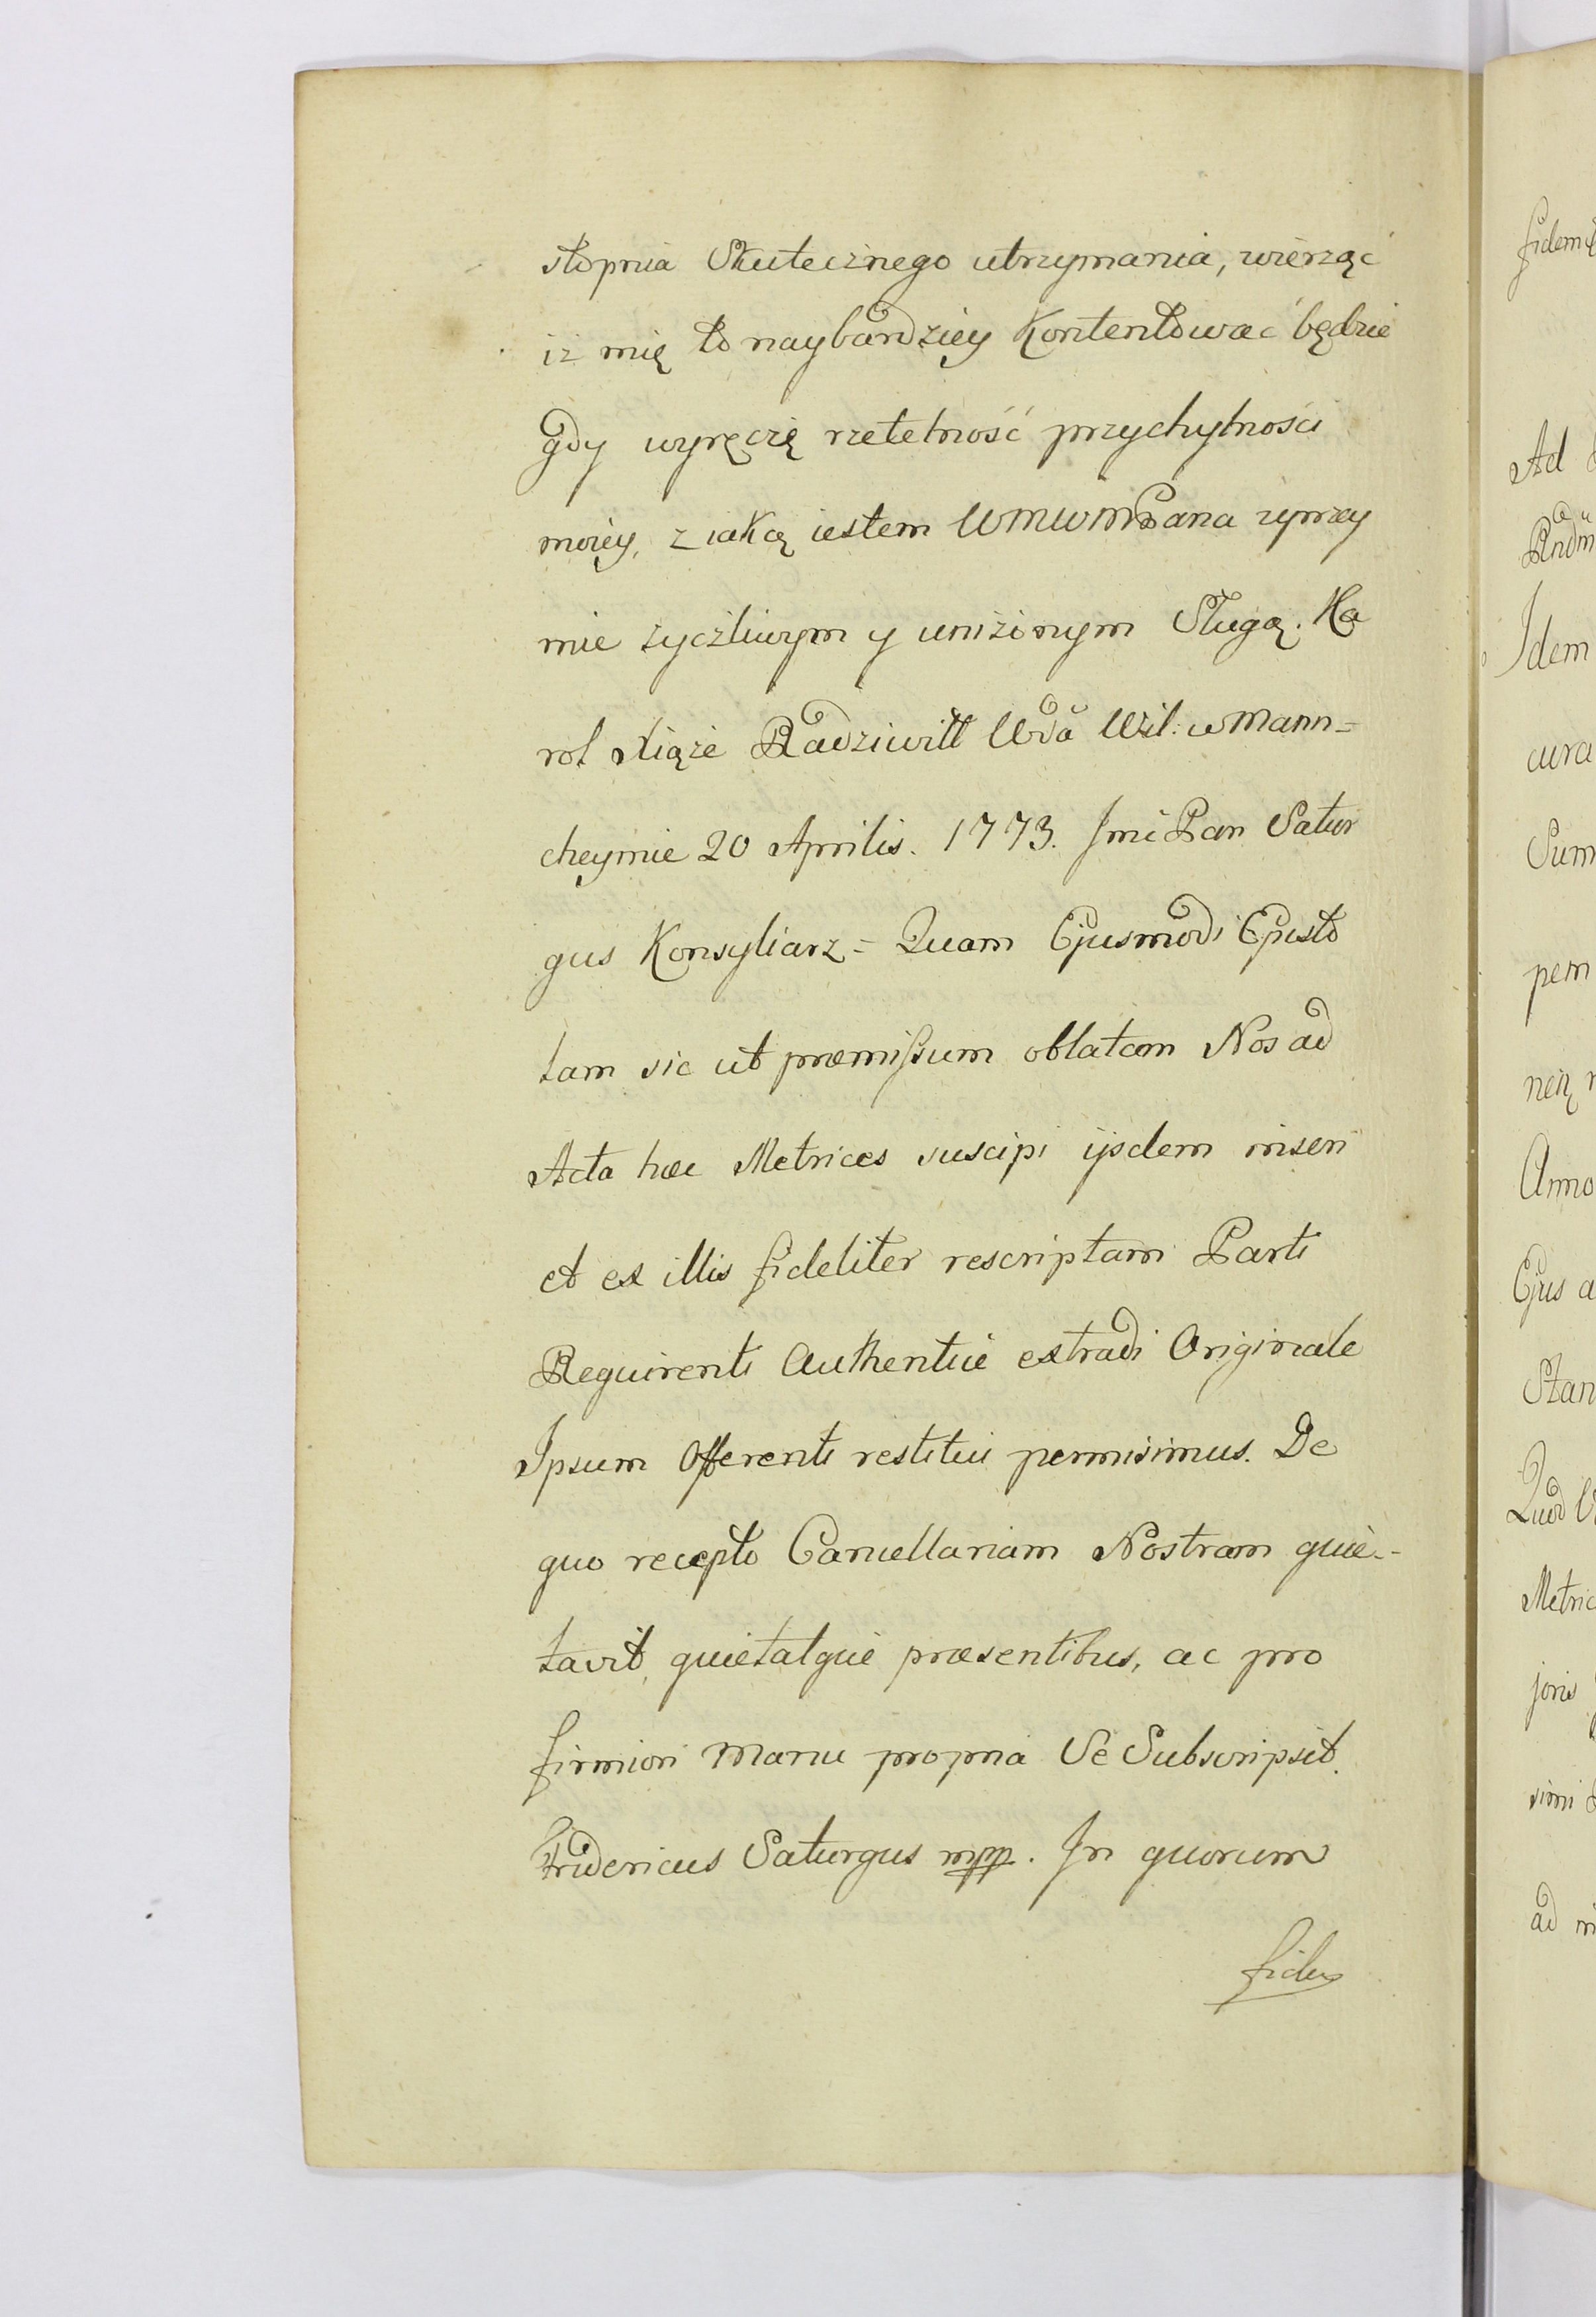 stopnia Skutecznego utrzymania, wierząc
iż mię to naybardziey Kontentować będzie
gdy wyręczę rzetelność przychylności
moiey, z iaką iestem WMWMPana uprzey
mie życzliwym y uniżonym Sługą. Ka
rol Xiąże Radziwiłł Wda Wil: w Mann=
cheymie 20 Aprilis. 1773. Jmć Pan Satur
gus Konsyliarz = Quam Ejusmodi Episto
lam sic ut præmissum oblatam Nos ad
Acta hæc Metrices suscipi ijsdem inseri
et ex illis fideliter rescriptam Parti
Requirenti Authentice extradi Originale
Ipsum Offerenti restitui permisimus. De
quo recepto Cancellariam Nostram quie-
tavit, quietatque præsentibus, ac pro
firmiori Manu propria Se Subscripsit.
Fridericus Saturgus mpp. In quorum
fidem
Ad
Idem
cura
Sum
pem
neq
Anno
Ejus a
Stan
Quod
Metric
joris
simi
ad